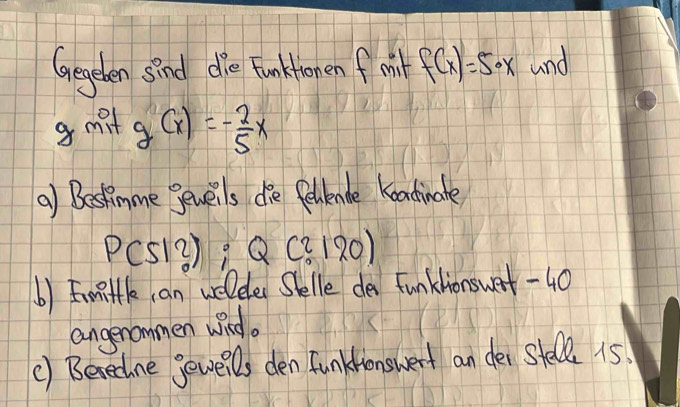 Gegeben sind die Funktionen f mit f(x)=5·x und
g mit g(x) = -2/5 x
a) Bestimme jeweils die fehlende Koordinate
P(5|?) ; Q (?|20)
b) Ermittle, an welcher Stelle der Funktionswert -40
angenommen wird.
c) Berechne jeweils den Funktionswert an der Stelle 15.